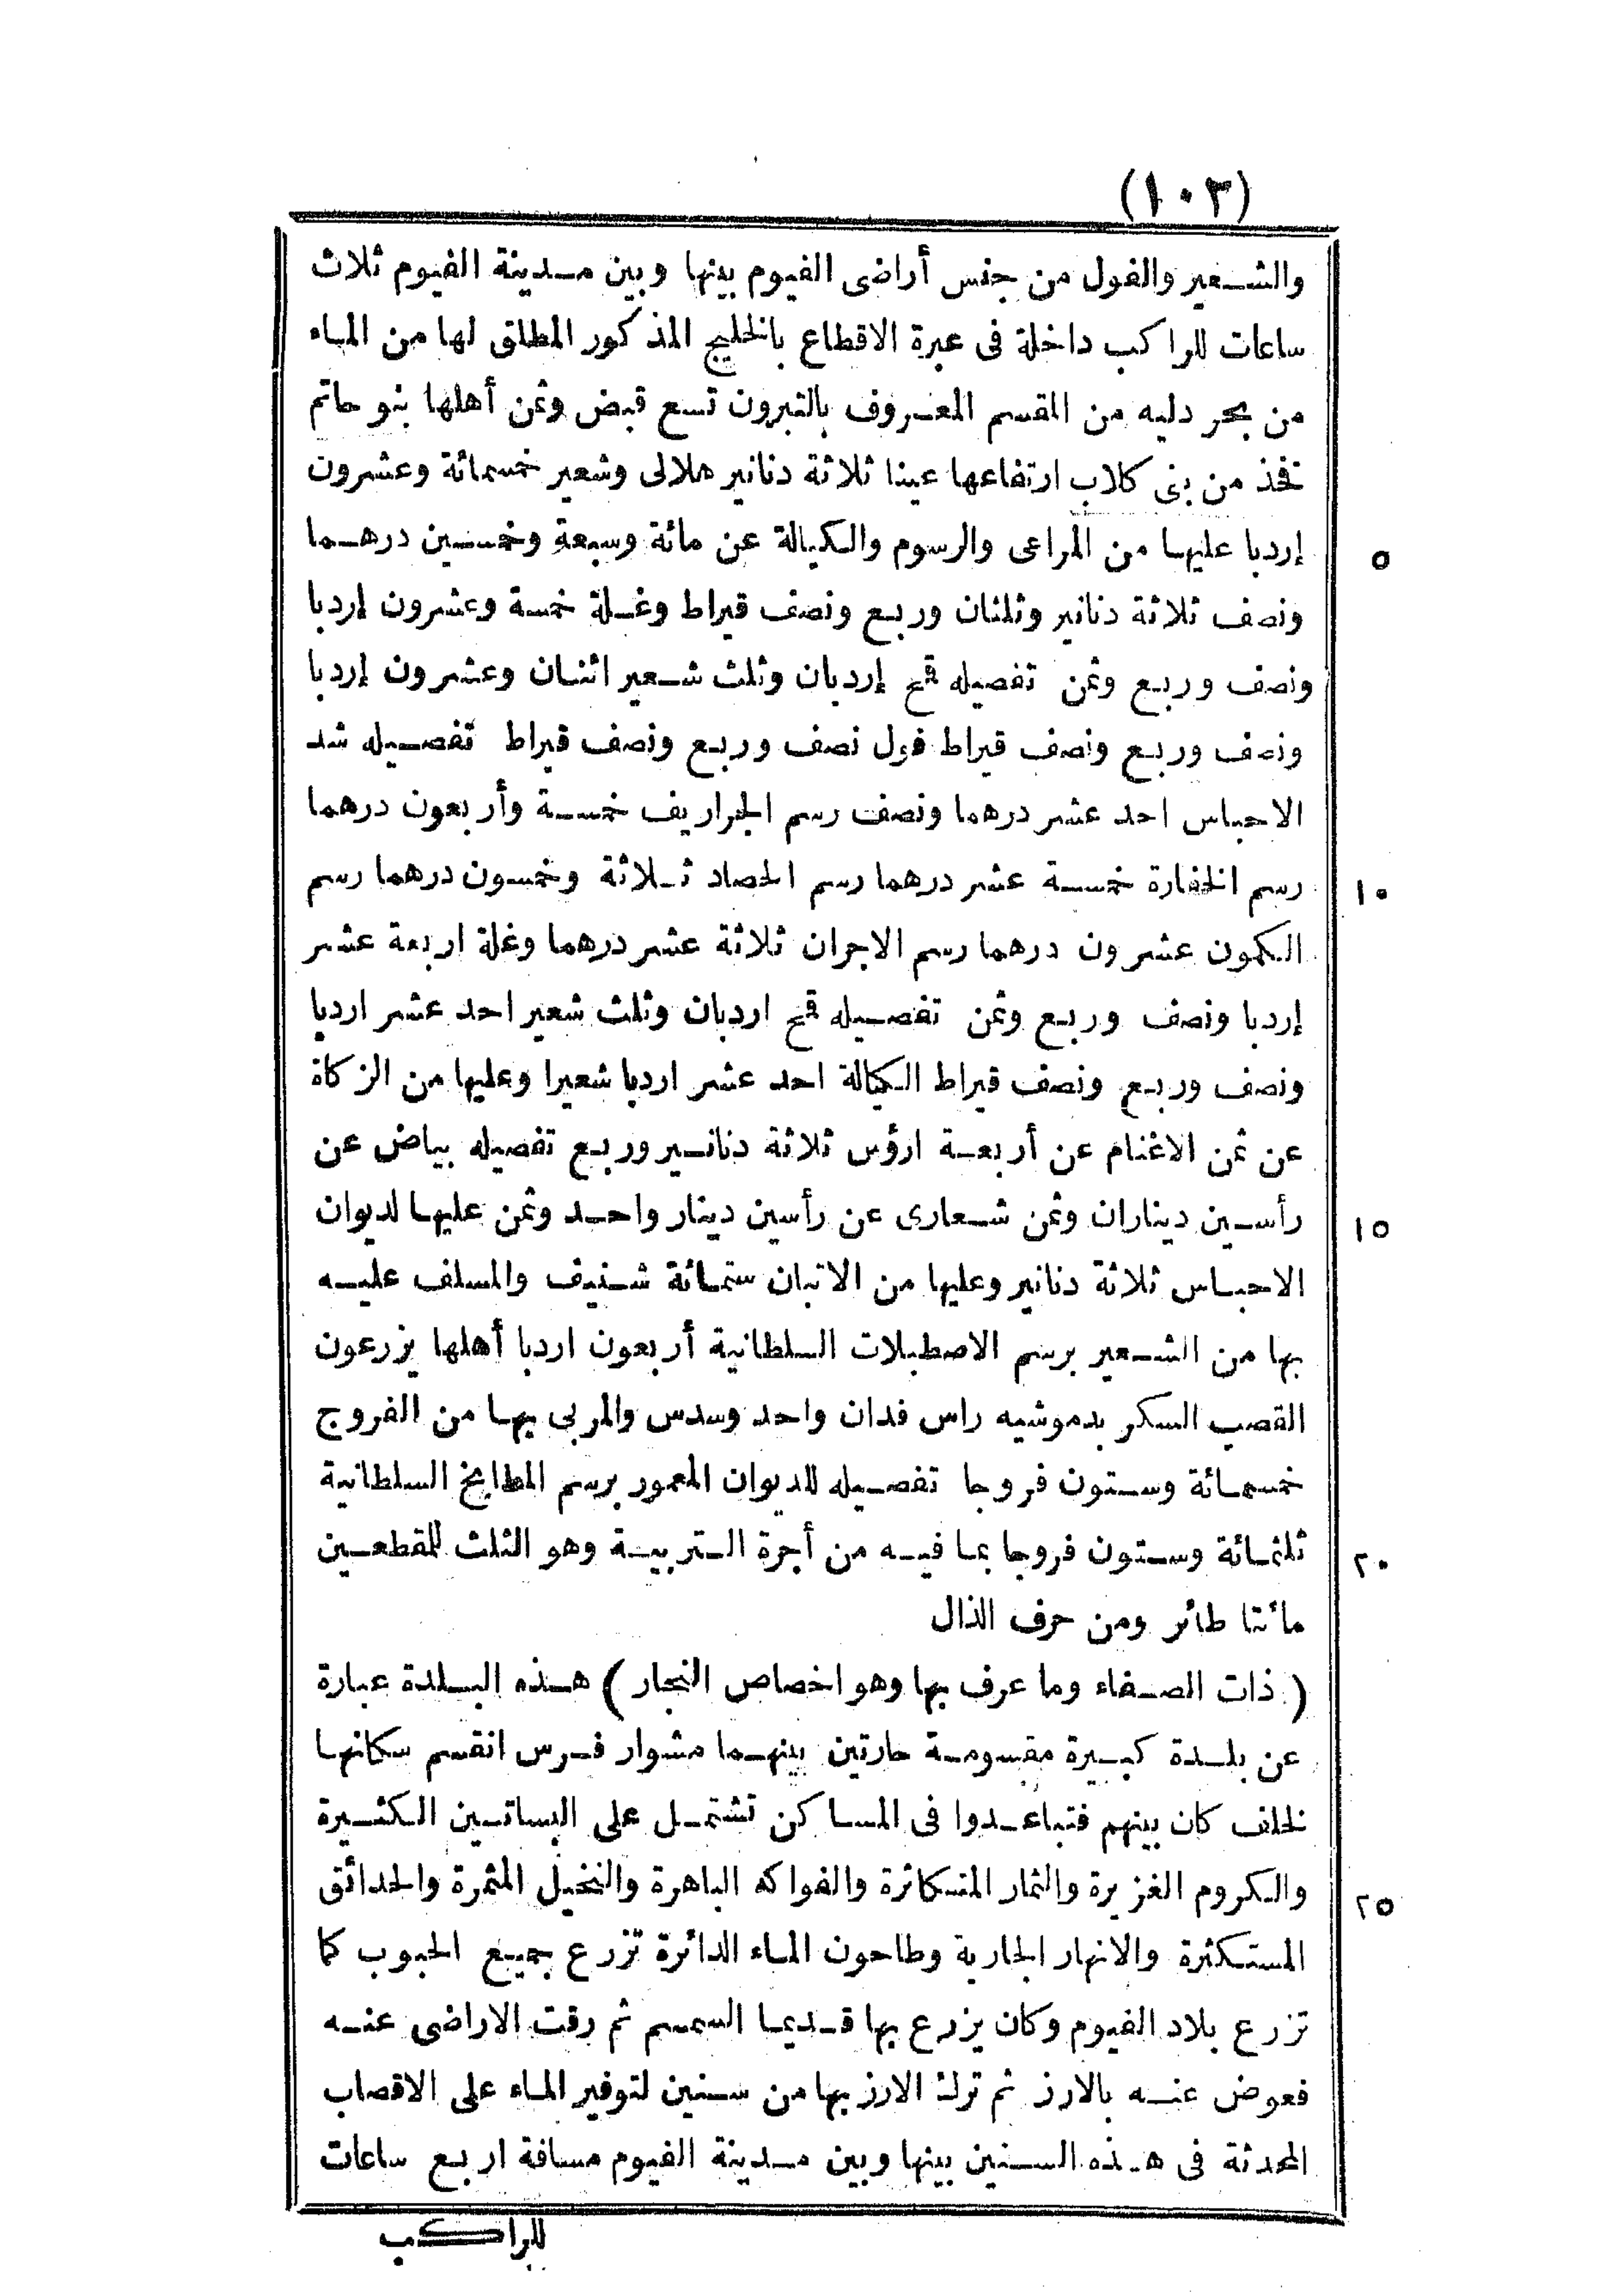 (١٠٣)
والشعير والفول من جنس أراضى الفيوم بينها وبين مدينة الفيوم ثلاث
ساعات للراكب داخلة فى عبرة الاقطاع بالخليج المذكور المطلق لها من الماء
من بحر دليه من القسم المعروف بالتبرون تسع قبض وثمن أهلها بنو حاتم
فخذ من بنى كلاب ارتفاعها عينا ثلاثة دنانير هلالى وشعير خمسمائة وعشرون
إردبا عليها من المراعى والرسوم والكيالة عن مائة وسبعة وخمسين درهما
٥
ونصف ثلاثة دنانير وثلثان وربع ونصف قيراط وغلة خمسة وعشرون إردبا
ونصف وربع وثمن تفصيله قمح إردبان وثلث شعير اثنان وعشرون إردبا
ونصف وربع ونصف قيراط فول نصف وربع ونصف قيراط تفصيله شد
الاحباس احد عشر درهما ونصف رسم الجراريف خمسة وأربعون درهما
رسم الخفارة خمسة عشر درهما رسم الحصاد ثلاثة وخمسون درهما رسم
١٠
الكمون عشرون درهما رسم الاجران ثلاثة عشر درهما وغلة اربعة عشر
إردبا ونصف وربع وثمن تفصيله قمح اردبان وثلث شعير احد عشر اردبا
ونصف وربع ونصف قيراط الكيالة احد عشر اردبا شعيرا وعليها من الزكاة
عن ثمن الاغنام عن أربعة ارؤس ثلاثة دنانير وربع تفصيله بياض عن
رأسين ديناران وثمن شعارى عن رأسين دينار واحد وثمن عليها لديوان
١٥
الاحباس ثلاثة دنانير وعليها من الاتبان ستمائة شنيف والمسلف عليه
بها من الشعير برسم الاصطبلات السلطانية أربعون اردبا أهلها يزرعون
القصب السكر بدموشيه راس فدان واحد وسدس والمربى بها من الفروج
خمسمائة وستون فروجا تفصيله للديوان المعمور برسم المطابخ السلطانية
ثلثمائة وستون فروجا بما فيه من أجرة التربية وهو الثلث للمقطعين
٢٠
مائتا طائر ومن حرف الذال
(ذات الصفاء وما عرف بها وهو اخصاص النجار) هذه البلدة عبارة
عن بلدة كبيرة مقسومة حارتين بينهما مشوار فرس انقسم سكانها
لخلف كان بينهم فتباعدوا فى المساكن تشتمل على البساتين الكثيرة
والكروم الغزيرة والثمار المتكاثرة والفواكه الباهرة والنخيل المثمرة والحدائق
٢٥
المستكثرة والانهار الجارية وطاحون الماء الدائرة تزرع بجميع الحبوب كما
تزرع بلاد الفيوم وكان يزرع بها قديما السمسم ثم رقت الاراضى عنه
فعوض عنه بالارز ثم ترك الارز بها من سنين لتوفير الماء على الاقصاب
المحدثة فى هذه السنين بينها وبين مدينة الفيوم مسافة اربع ساعات
للراكب